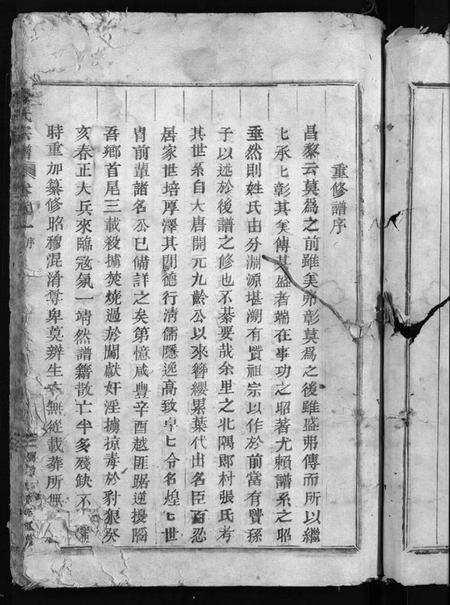 重修譜序
昌黎云莫為之前雖美弗彰莫為之後雖盛弗傳而所以繼
七承七彰其美傳其盛者端在事功之昭著尤賴譜系之昭
垂然則姓氏由分淵源堪溯有賢祖宗以作於前當有賢孫
子以述於後譜之修也不綦要哉余里之北隅郎村張氏考
其世系自大唐開元九齡公以來簪纓累葉代出名臣百忍
居家世培厚澤其間德行清儒隱逸高致卓七令名煌七世
冑前輩諸名公已備詳之矣第憶咸豐辛酉越匪踞逆擾陷
吾鄉首尾三載殺擄焚燒過於闖獻奸淫擄掠毒於豺狼癸
亥春正大兵來臨寇氛一靖然譜籍散亡半多殘缺不
時重加纂修昭穆混淆尊卑莫辨生卒無從載葬所無
氏宗譜
序